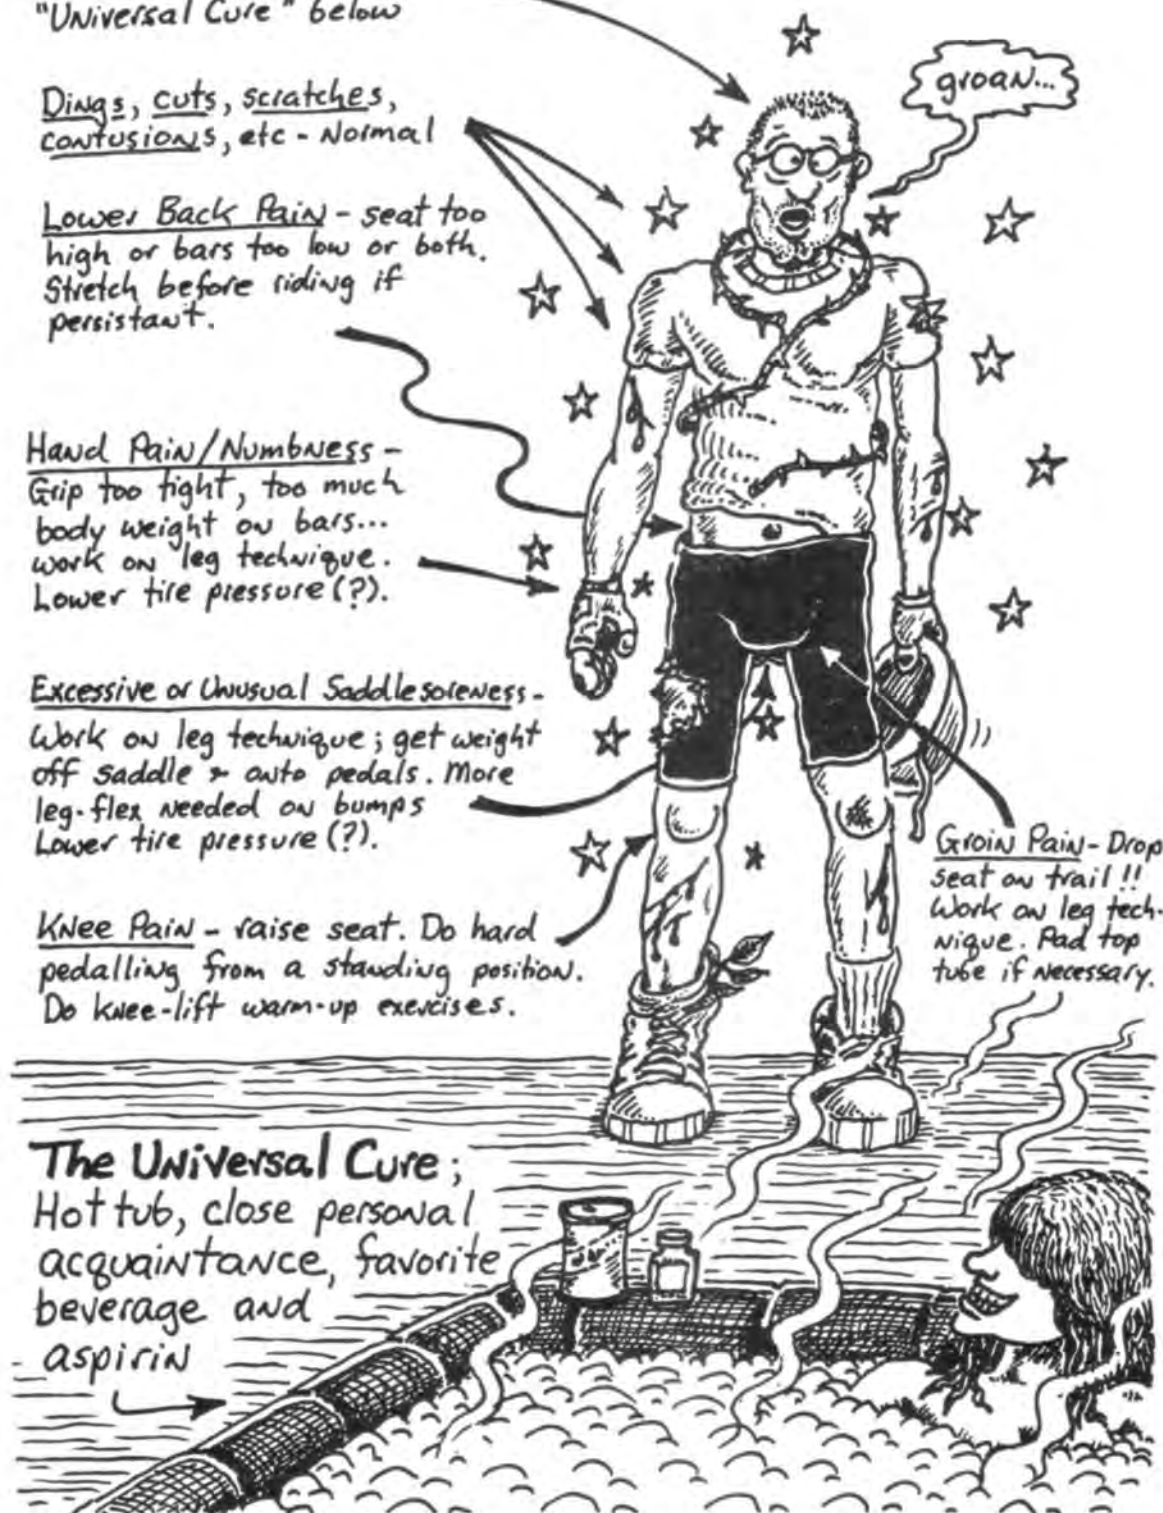 "Universal Cure" below
groan...
Dings, cuts, scratches,
contusions, etc - Normal
Lower Back Pain - seat too
high or bars too low or both.
Stretch before riding if
persistant.
Hand Pain/Numbness -
Grip too tight, too much
body weight on bars...
work on leg technique.
Lower tire pressure (?).
Excessive or Unusual Saddlesoreness -
Work on leg technique; get weight
off saddle & onto pedals. More
leg-flex needed on bumps
Lower tire pressure (?).
Knee Pain - raise seat. Do hard
pedalling from a standing position.
Do knee-lift warm-up exercises.
Groin Pain - Drop
seat on trail !!
Work on leg tech-
nique. Pad top
tube if necessary.
The Universal Cure;
Hot tub, close personal
acquaintance, favorite
beverage and
aspirin